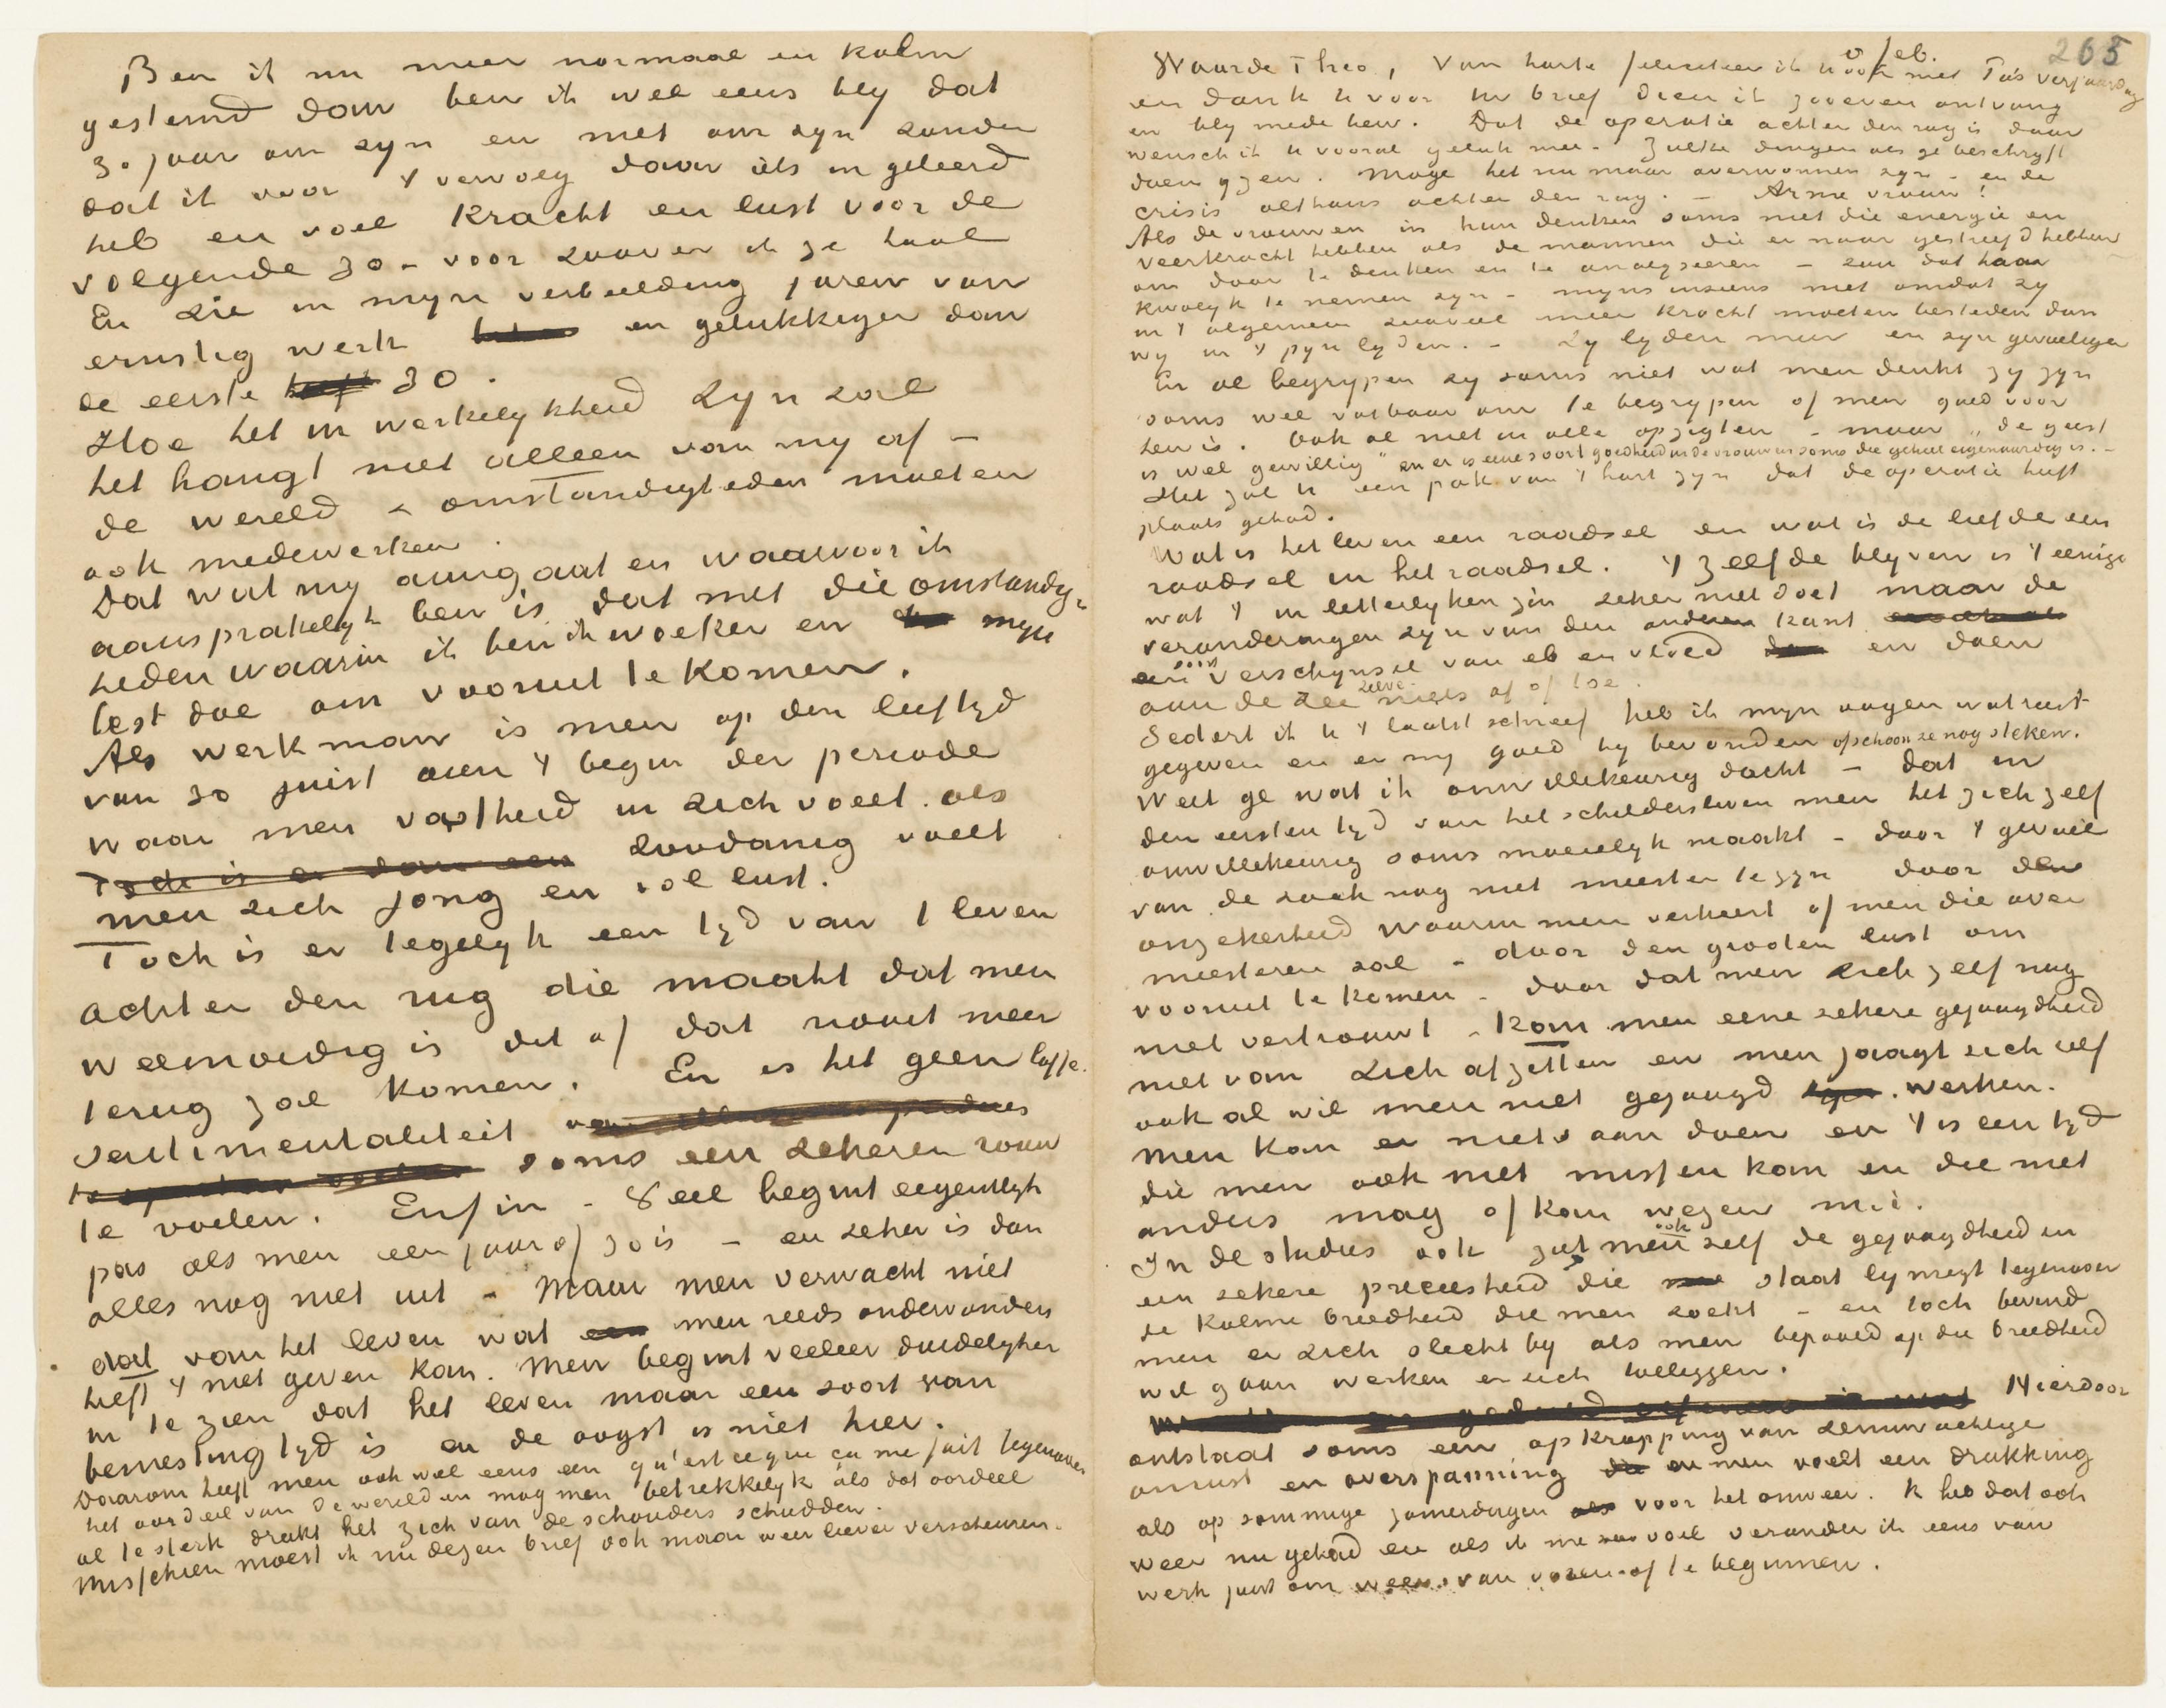 Ben ik nu meer normaal en kalm
gestemd dan ben ik wel eens bly dat
30 jaar om zyn en niet om zyn zonder
dat ik voor 't vervolg daar iets in geleerd
heb en voel kracht en lust voor de
volgende 30 - voor zoover ik ze haal
En zie in myn verbeelding jaren van
ernstig werk en gelukkiger dan
de eerste 30.
Hoe het in werkelykheid zyn zal
het hangt niet alleen van my af -
de wereld & omstandigheden moeten
ook medewerken.
Dat wat my aangaat en waarvoor ik
aansprakelyk ben is dat met die omstandig=
heden waarin ik ben ik woeker en myn
best doe om vooruit te komen.
Als werkman is men op den leeftyd
van 30 juist aan 't begin der periode
waar men vastheid in zich voelt. als
Toch is er dan een zoodanig voelt
men zich jong en vol lust.
Toch is er tegelyk een tyd van 't leven
achter den rug die maakt dat men
weemoedig is dit of dat nooit meer
terug zal komen. En is het geen laffe
sentimentaliteit
soms een zekeren rouw
te voelen. Enfin - Veel begint eigentlyk
pas als men een jaar of 30 is - en zeker is dan
alles nog niet uit - Maar men verwacht niet
dat van het leven wat men reeds ondervonden
heeft 't niet geven kan. Men begint veeleer duidelyker
in te zien dat het leven maar een soort van
bemesting tyd is en de oogst is niet hier.
Daarom heeft men ook wel eens een qu'est ce que ca me fait tegenover
het oordeel van de wereld en mag men betrekkelyk als dat oordeel
al te sterk drukt het zich van de schouders schudden.
Misschien moest ik nu dezen brief ook maar weer liever verscheuren.
265
8 feb.
Waarde Theo, Van harte feliciteer ik u ook met Pa's verjaardag
en dank u voor uw brief dien ik zooeven ontving
en bly mede ben. Dat de operatie achter den rug is daar
wensch ik u vooral geluk mee. Zulke dingen als ge beschryft
doen yzen. Moge het nu maar overwonnen zyn - en de
crisis althans achter den rug. - Arme vrouw!
Als de vrouwen in hun denken soms niet die energie en
veerkracht hebben als de mannen die er naar gestreefd hebben
om door te denken en te analyseeren - zou dat haar
kwalyk te nemen zyn - myns inziens niet omdat zy
in 't algemeen zooveel meer kracht moeten besteden dan
wy in 't pyn lyden. - Zy lyden meer en zyn gevoeliger
En al begrypen zy soms niet wat men denkt zy zyn
soms wel vatbaar om te begrypen of men goed voor
hen is. Ook al niet in alle opzigten - maar „de geest
is wel gewillig" en er is eene soort goedheid in de vrouw soms die geheel eigenaardig is. -
Het zal u een pak van 't hart zyn dat de operatie heeft
plaats gehad.
Wat is het leven een raadsel en wat is de liefde een
raadsel in het raadsel. 't zelfde blyven is 't eenige
wat 't in letterlyken zin zeker niet doet maar de
veranderingen zyn van den anderen kant
een soort verschynsel van eb en vloed en doen
aan de zee zelve niets af of toe.
Sedert ik u 't laatst schreef heb ik myn oogen wat rust
gegeven en er my goed by bevonden ofschoon ze nog steken.
Weet ge wat ik onwillekeurig dacht - dat in
den eersten tyd van het schildersleven men het zich zelf
onwillekeurig soms moeielyk maakt - door 't gevoel
van de zaak nog niet meester te zyn door den
onzekerheid waarin men verkeert of men die over
meesteren zal - door den grooten lust om
vooruit te komen - door dat men zich zelf nog
niet vertrouwt - kan men eene zekere gejaagdheid
niet van zich afzetten en men jaagt zich zelf
ook al wil men niet gejaagd zyn werken.
Men kan er niets aan doen en 't is een tyd
die men ook niet missen kan en die niet
anders mag of kan wezen m.i.
In de studies ook ziet men ook zelf de gejaagdheid en
een zekere preciesheid die staat lynregt tegenover
de kalme breedheid die men zoekt - en toch bevind
men er zich slecht by als men bepaald op die breedheid
wil gaan werken er zich toeleggen.
Hierdoor
ontstaat soms een opkropping van zenuwachtige
onrust en overspanning en men voelt een drukking
als op sommige zomerdagen voor het onweer. Ik heb dat ook
weer nu gehad en als ik me zoo voel verander ik eens van
werk juist om weer van voren af te beginnen.